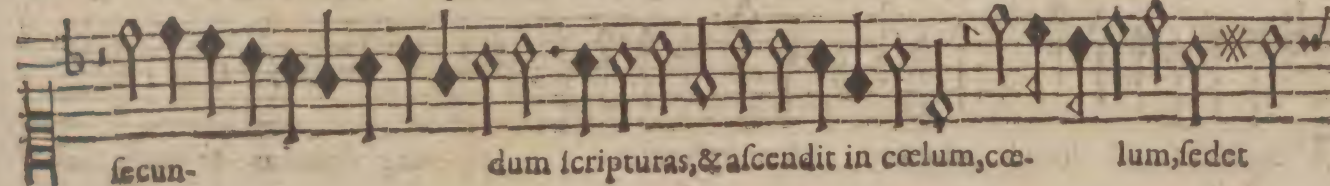 ſecun- dum ſcripturas,& aſcendit in cœlum,cœ- lum,ſedet